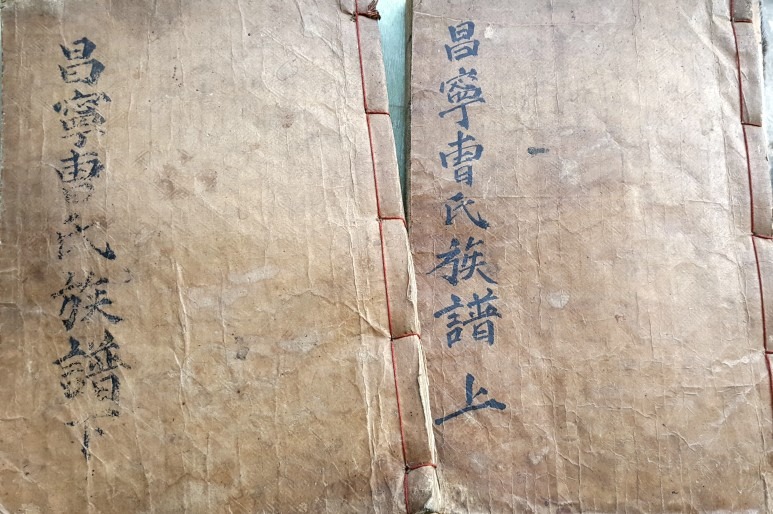 昌寧曺氏族譜上
昌寧曺氏族譜下